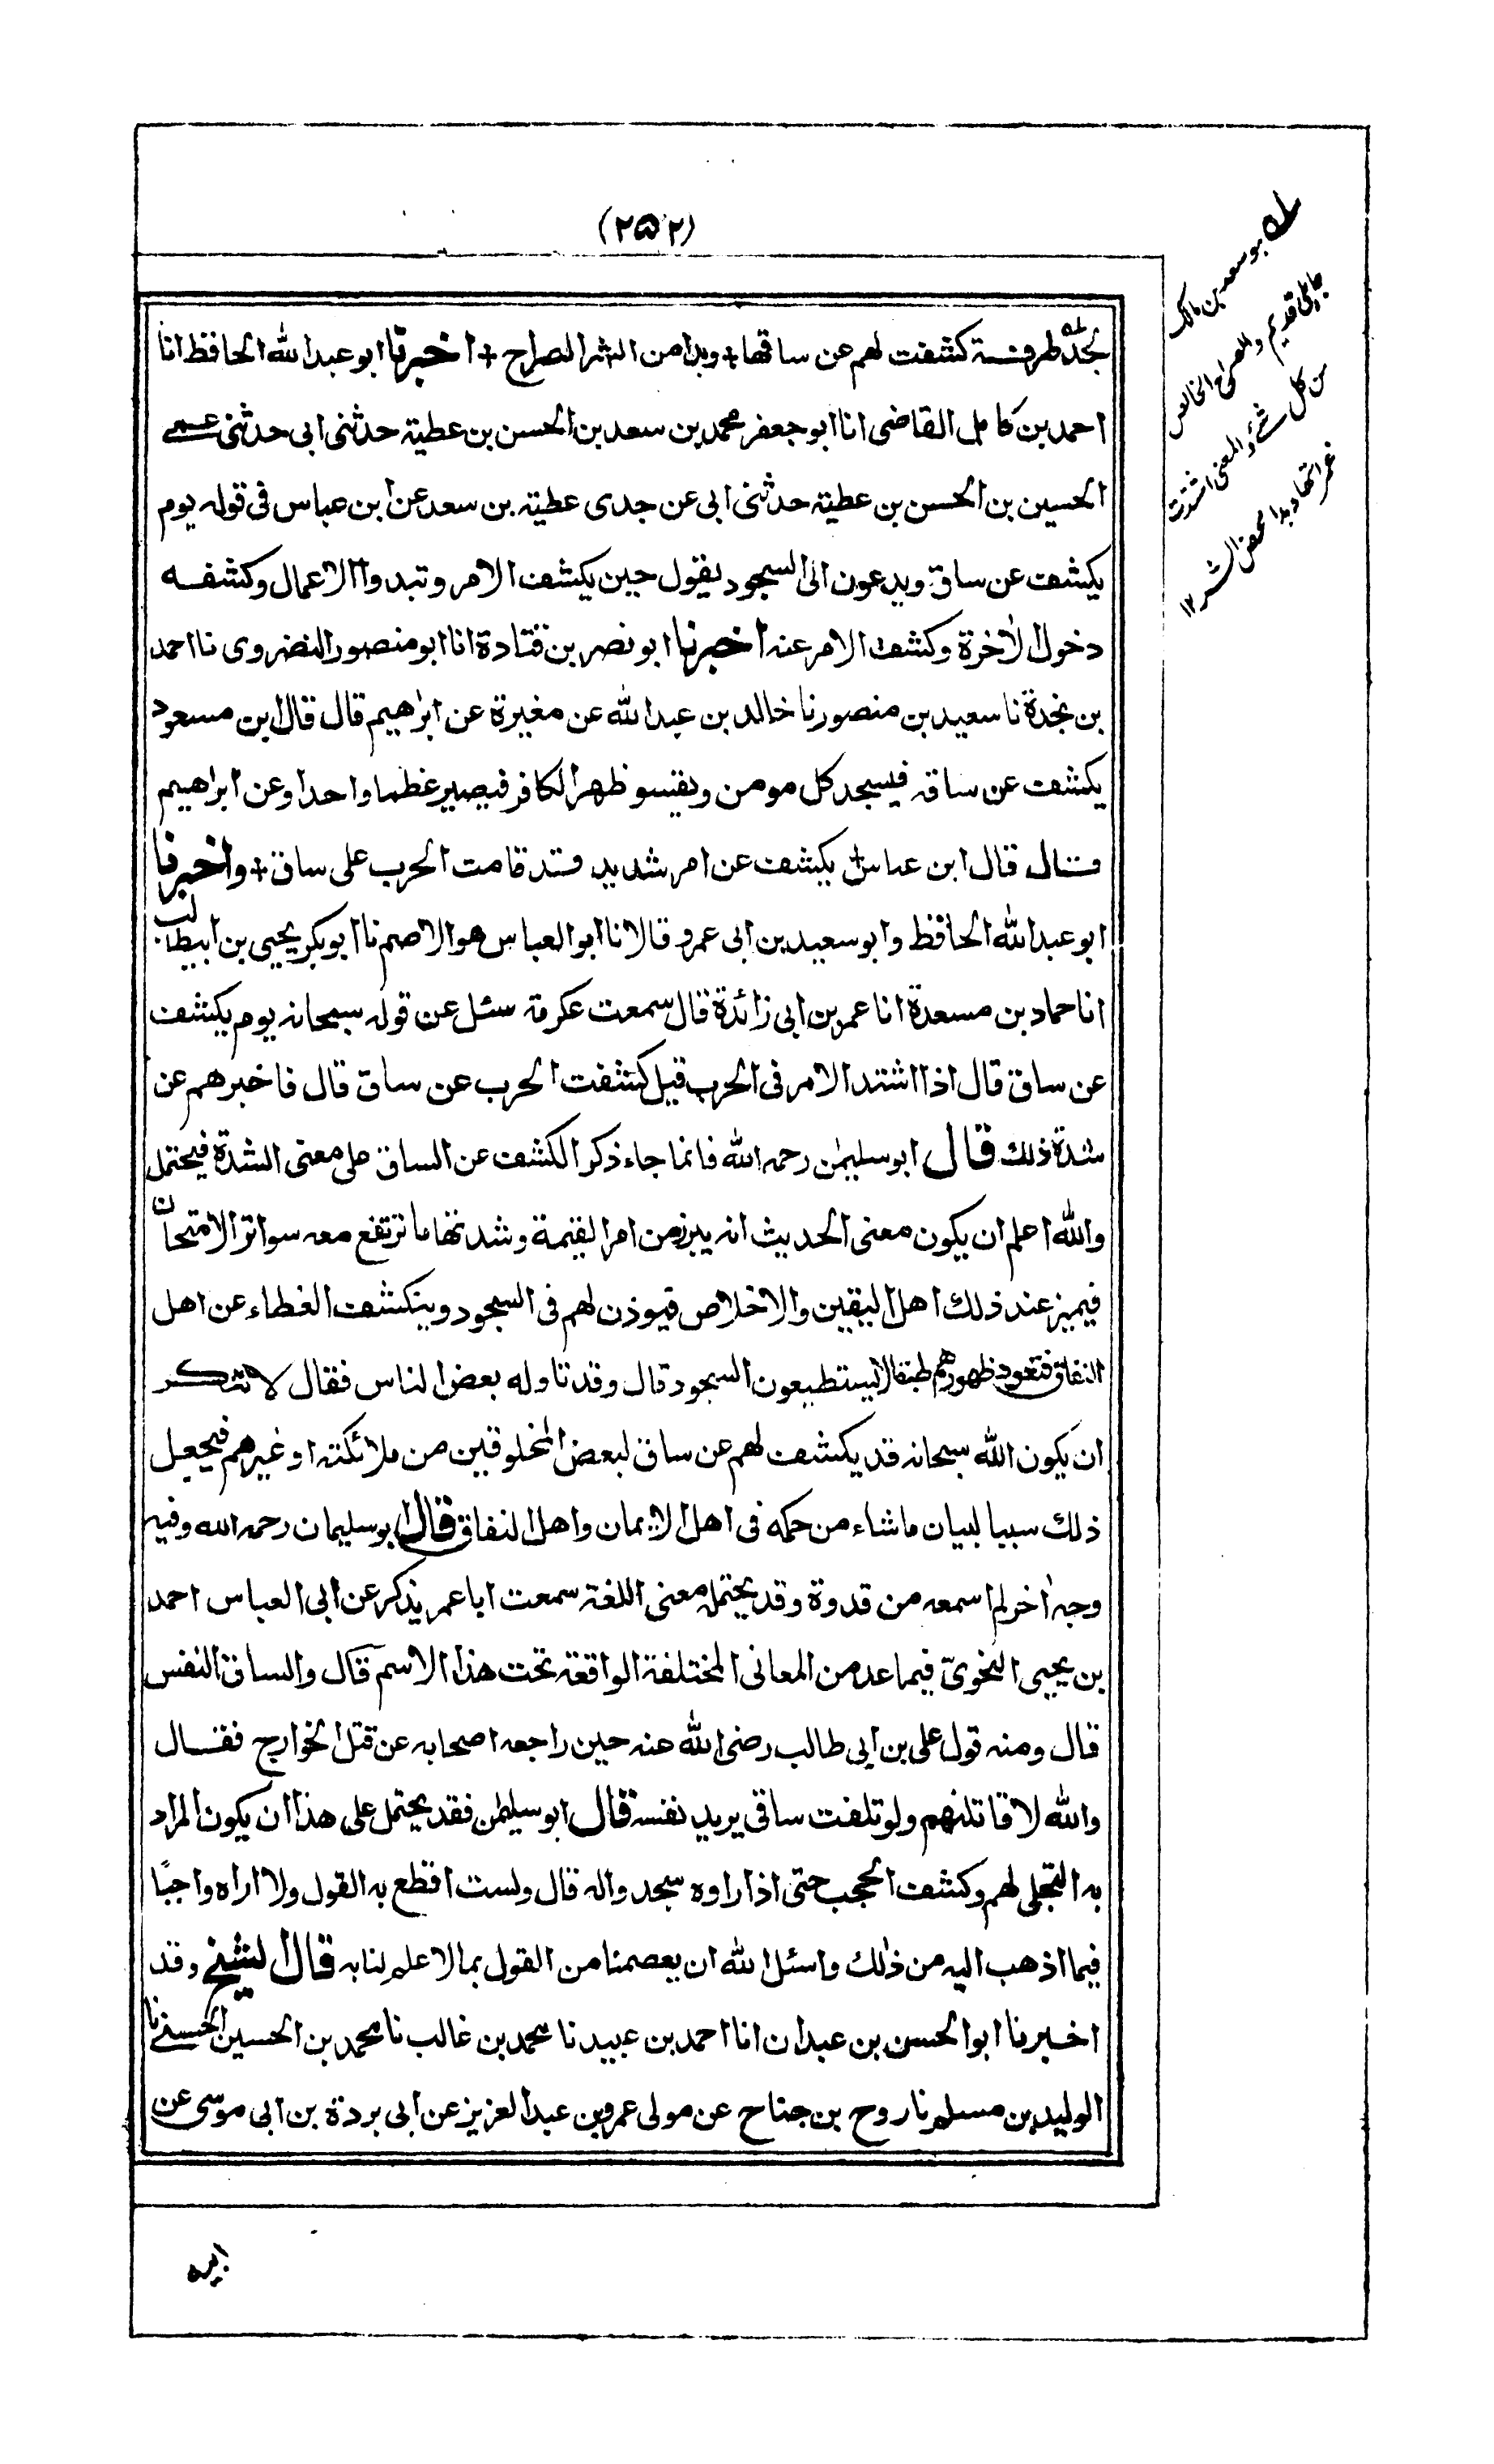 (۲۵۲)
لجد طرفة كشفت لهم عن ساقها + وبدا من الشر الصراح + اخبرنا ابو عبد الله الحافظ انا
احمد بن كامل القاضى انا ابو جعفر محمد بن سعد بن الحسن بن عطية حدثنى ابى حدثنى عمى
الحسين بن الحسن بن عطية حدثنى ابى عن جدى عطية بن سعد عن ابن عباس فى قوله يوم
يكشف عن ساق ويدعون الى السجود يقول حين يكشف الامر وتبدوا الاعمال وكشفه
دخول الاخرة وكشف الامر عنه اخبرنا ابو نصر بن قتادة انا ابو منصور النضروى نا احمد
بن نجدة نا سعيد بن منصور نا خالد بن عبد الله عن مغيرة عن ابراهيم قال قال ابن مسعود
يكشف عن ساقه فيسجد كل مومن ويقسو ظهر الكافر فيصير عظما واحدا وعن ابراهيم
قال قال ابن عباس يكشف عن امر شديد قد قامت الحرب على ساق + واخبرنا
ابو عبد الله الحافظ وابو سعيد بن ابى عمرو قالا نا ابو العباس هو الاصم نا ابو بكر يحيى بن ابيطالب
انا حماد بن مسعدة انا عمر بن ابى زائدة قال سمعت عكرمة سئل عن قوله سبحانه يوم يكشف
عن ساق قال اذا اشتد الامر فى الحرب قيل كشفت الحرب عن ساق قال فاخبرهم عن
شدة ذلك قال ابو سليمن رحمه الله فانما جاء ذكر الكشف عن الساق على معنى الشدة فيحتمل
والله اعلم ان يكون معنى الحديث انه يبرز من امر القيمة وشدتها ما ترتفع معه سواتر الامتحان
فيميز عند ذلك اهل اليقين والاخلاص فيوذن لهم فى السجود وينكشف الغطاء عن اهل
النفاق فتعود ظهورهم طبقا لا يستطيعون السجود قال وقد تاوله بعض الناس فقال لا تنكر
ان يكون الله سبحانه قد يكشف لهم عن ساق لبعض المخلوقين من ملائكته او غيرهم فيجعل
ذلك سببا لبيان ما شاء من حكمه فى اهل الايمان واهل النفاق قال ابو سليمان رحمه الله وفيه
وجه اخر لم اسمعه من قدوة وقد يحتمله معنى اللغة سمعت ابا عمر يذكر عن ابى العباس احمد
بن يحيى النحوى فيما عد من المعانى المختلفة الواقعة تحت هذا الاسم قال والساق النفس
قال ومنه قول على بن ابى طالب رضى الله عنه حين راجعه اصحابه عن قتل الخوارج فقال
والله لاقاتلنهم ولو تلفت ساقى يريد نفسه قال ابو سليمن فقد يحتمل على هذا ان يكون المراد
به التجلى لهم وكشف الحجب حتى اذا راوه سجدوا له قال ولست اقطع به القول ولا اراه واجبًا
فيما اذهب اليه من ذلك واسئل الله ان يعصمنا من القول بما لا علم لنا به قال الشيخ وقد
اخبرنا ابو الحسن بن عبدان انا احمد بن عبيد نا محمد بن غالب نا محمد بن الحسين الحسنى نا
الوليد بن مسلم نا روح بن جناح عن مولى عمر بن عبد العزيز عن ابى بردة بن ابى موسى عن
هو سعد بن مالك
جاهلى قديم والصراح الخالص
من كل شئ والمعنى اشتدت
غمراتها وبدا محض الشر ۱۲
ابيه